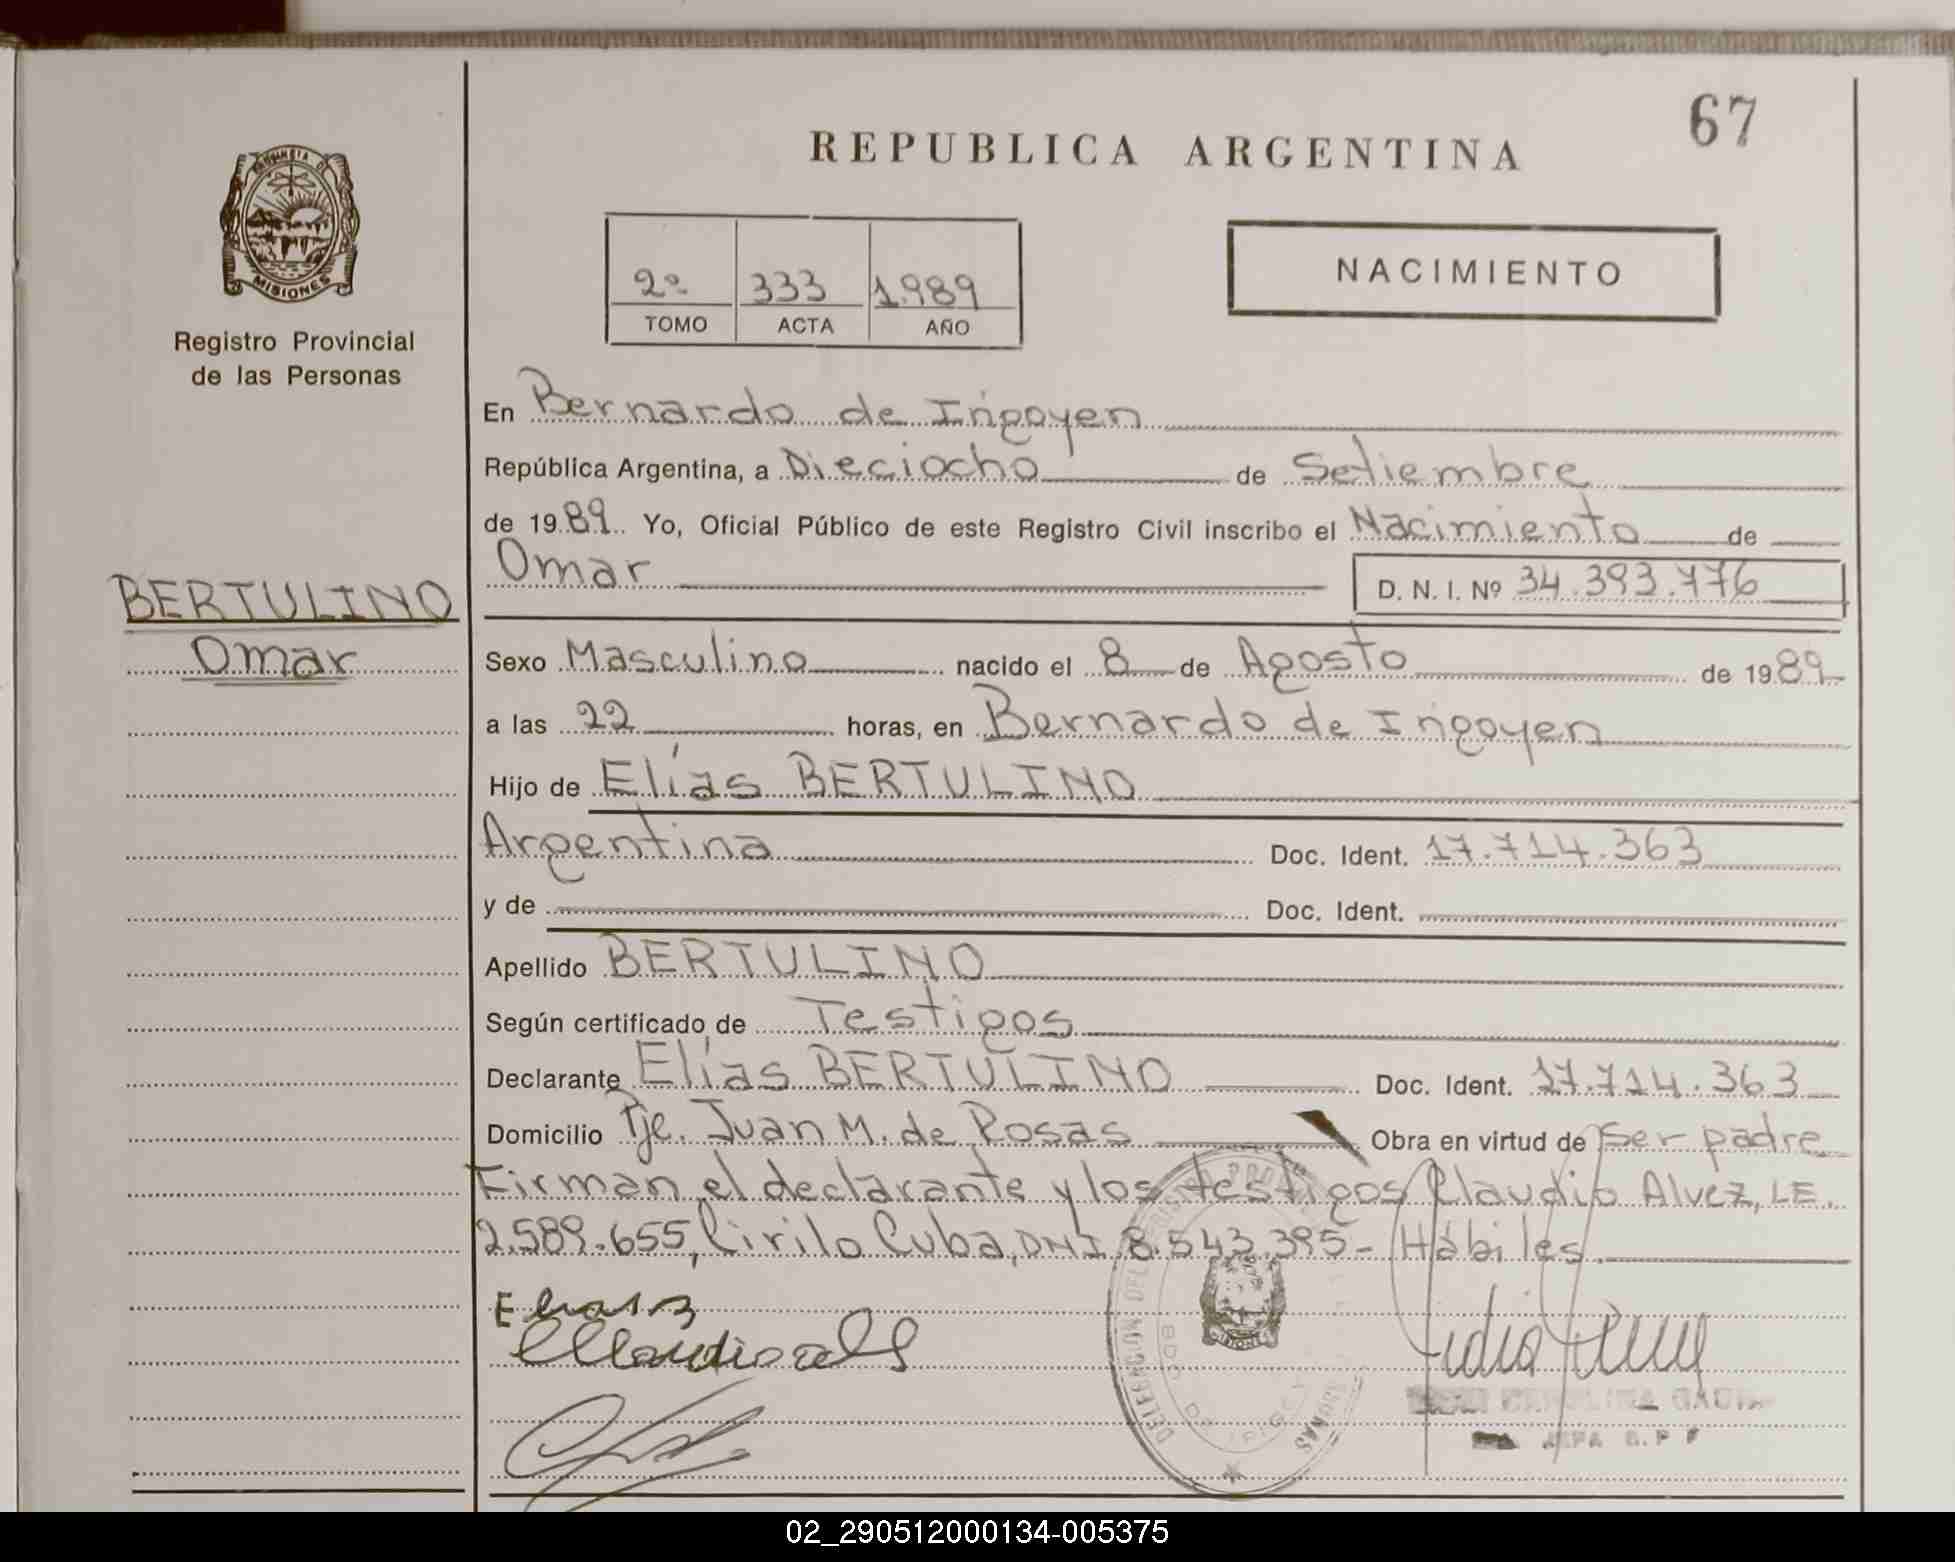 67
REPUBLICA ARGENTINA
PROVINCIA DE
MISIONES
Registro Provincial
de las Personas
2º 333 1.989
TOMO ACTA AÑO
NACIMIENTO
En Bernardo de Irigoyen
República Argentina, a Dieciocho de Setiembre
de 1989 Yo, Oficial Público de este Registro Civil inscribo el Nacimiento de
Omar D. N. I. Nº 34.393.776
BERTULINO
Omar
Sexo Masculino nacido el 8 de Agosto de 1989
a las 22 horas, en Bernardo de Irigoyen
Hijo de Elías BERTULINO
Argentina Doc. Ident. 17.714.363
y de Doc. Ident.
Apellido BERTULINO
Según certificado de Testigos
Declarante Elías BERTULINO Doc. Ident. 17.714.363
Domicilio Pje. Juan M. de Rosas Obra en virtud de ser padre
Firman el declarante y los testigos Claudio Alvez, LE.
2.589.655, Cirilo Cuba, DNI 8.543.395- Hábiles.
Elias B
DELEGACION DEL
CAROLINA
JEFA
02_290512000134-005375